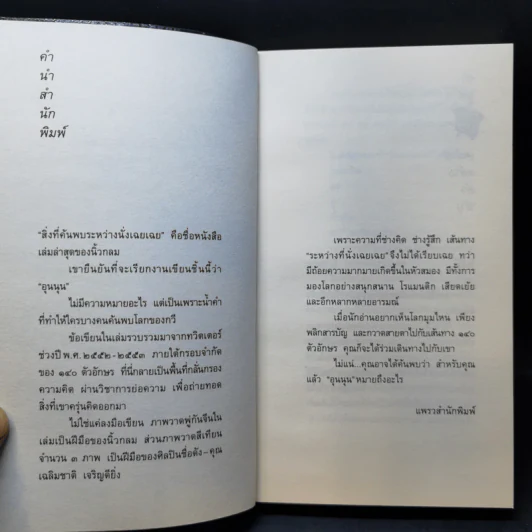 คำ
นำ
สำ
นัก
พิมพ์
"สิ่งที่ค้นพบระหว่างนั่งเฉยเฉย" คือชื่อหนังสือ
เล่มล่าสุดของนิ้วกลม
เขายืนยันที่จะเรียกงานเขียนชิ้นนี้ว่า
"อุนนุน"
ไม่มีความหมายอะไร แต่เป็นเพราะน้ำคำ
ที่ทำให้ใครบางคนค้นพบโลกของกวี
ข้อเขียนในเล่มรวบรวมมาจากทวิตเตอร์
ช่วงปี พ.ศ. ๒๕๕๒-๒๕๕๓ ภายใต้กรอบจำกัด
ของ ๑๔๐ ตัวอักษร ที่นี่กลายเป็นพื้นที่กลั่นกรอง
ความคิด ผ่านวิชาการย่อความ เพื่อถ่ายทอด
สิ่งที่เขาครุ่นคิดออกมา
ไม่ใช่แค่ลงมือเขียน ภาพวาดพู่กันจีนใน
เล่มเป็นฝีมือของนิ้วกลม ส่วนภาพวาดสีเทียน
จำนวน ๓ ภาพ เป็นฝีมือของศิลปินชื่อดัง-คุณ
เฉลิมชาติ เจริญดียิ่ง
เพราะความที่ช่างคิด ช่างรู้สึก เส้นทาง
"ระหว่างที่นั่งเฉยเฉย" จึงไม่ได้เรียบเฉย ทว่า
มีถ้อยความมากมายเกิดขึ้นในหัวสมอง มีทั้งการ
มองโลกอย่างสนุกสนาน โรแมนติก เสียดเย้ย
และอีกหลากหลายอารมณ์
เมื่อนักอ่านอยากเห็นโลกมุมไหน เพียง
พลิกสารบัญ และกวาดสายตาไปกับเส้นทาง ๑๔๐
ตัวอักษร คุณก็จะได้ร่วมเดินทางไปกับเขา
ไม่แน่...คุณอาจได้ค้นพบว่า สำหรับคุณ
แล้ว "อุนนุน"หมายถึงอะไร
แพรวสำนักพิมพ์